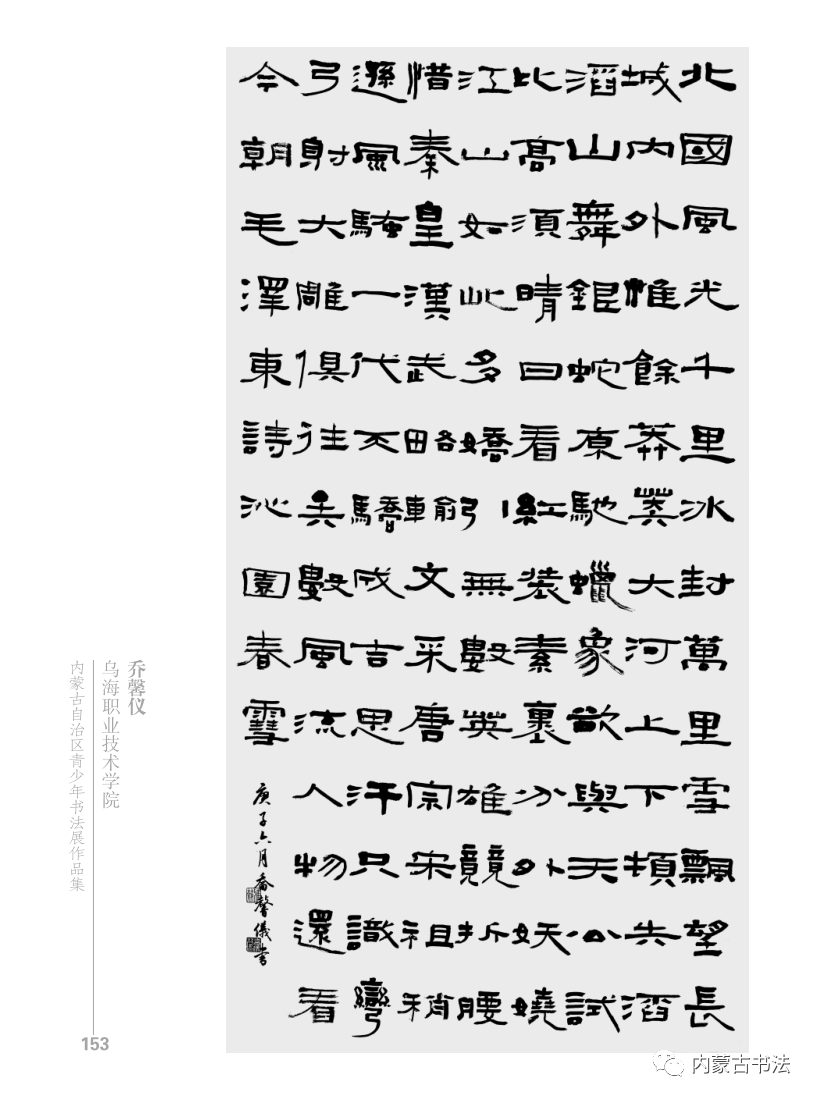 北國風光千里冰封萬里雪飄望長
城内外惟餘莽莽大河上下頓失滔
滔山舞銀蛇原馳蠟象欲與天公試
比高須晴日看紅裝素裹分外妖嬈
江山如此多嬌引無數英雄競折腰
惜秦皇漢武略輸文采唐宗宋祖稍
遜風騷一代天驕成吉思汗只識彎
弓射大雕俱往矣數風流人物還看
今朝毛澤東詩沁園春雪
庚子六月喬馨儀書
乔馨仪
乌海职业技术学院
内蒙古自治区青少年书法展作品集
153
内蒙古书法